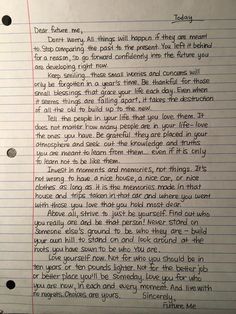 Today
Dear future me,
Don't worry. All things will happen if they are meant to.
Stop comparing the past to the present. You left it behind
for a reason, so go forward confidently into the future you
are developing right now.
Keep smiling... these small worries and concerns will
only be forgotten in a year's time. Be thankful for those
small blessings that grace your life each day. Even when
it seems things are falling apart, it takes the destruction
of all the old to build up to the new.
Tell the people in your life that you love them. It
does not matter how many people are in your life - love
the ones you have. Be grateful they are placed in your
atmosphere and seek out the knowledge and truths
you are meant to learn from them... even if it is only
to learn not to be like them.
Invest in moments and memories, not things. It's
not wrong to have a nice house, a nice car, or nice
clothes as long as it is the memories made in that
house and trips taken in that car and where you went
with those you love that you hold most dear.
Above all, strive to just be yourself. Find out who
you really are and be that person! Never stand on
someone else's ground to be who they are - build
your own hill to stand on and look around at the
roots you have sown to be who You are.
Love yourself now. Not for who you should be in
ten years or ten pounds lighter. Not for the better job
or better place you'll be someday. Love you for who
you are now, in each and every moment. And live with
no regrets. Choices are yours.
Sincerely,
Future Me